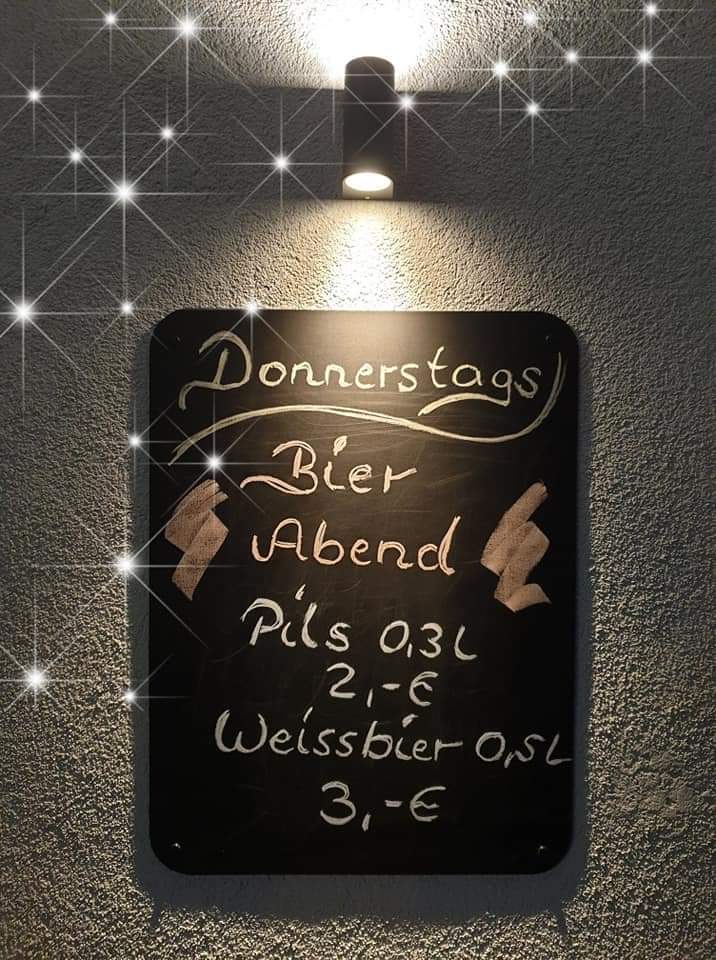 Donnerstags
Bier
Abend
Pils 0,3L
2,-€
Weissbier 0,5L
3,-€